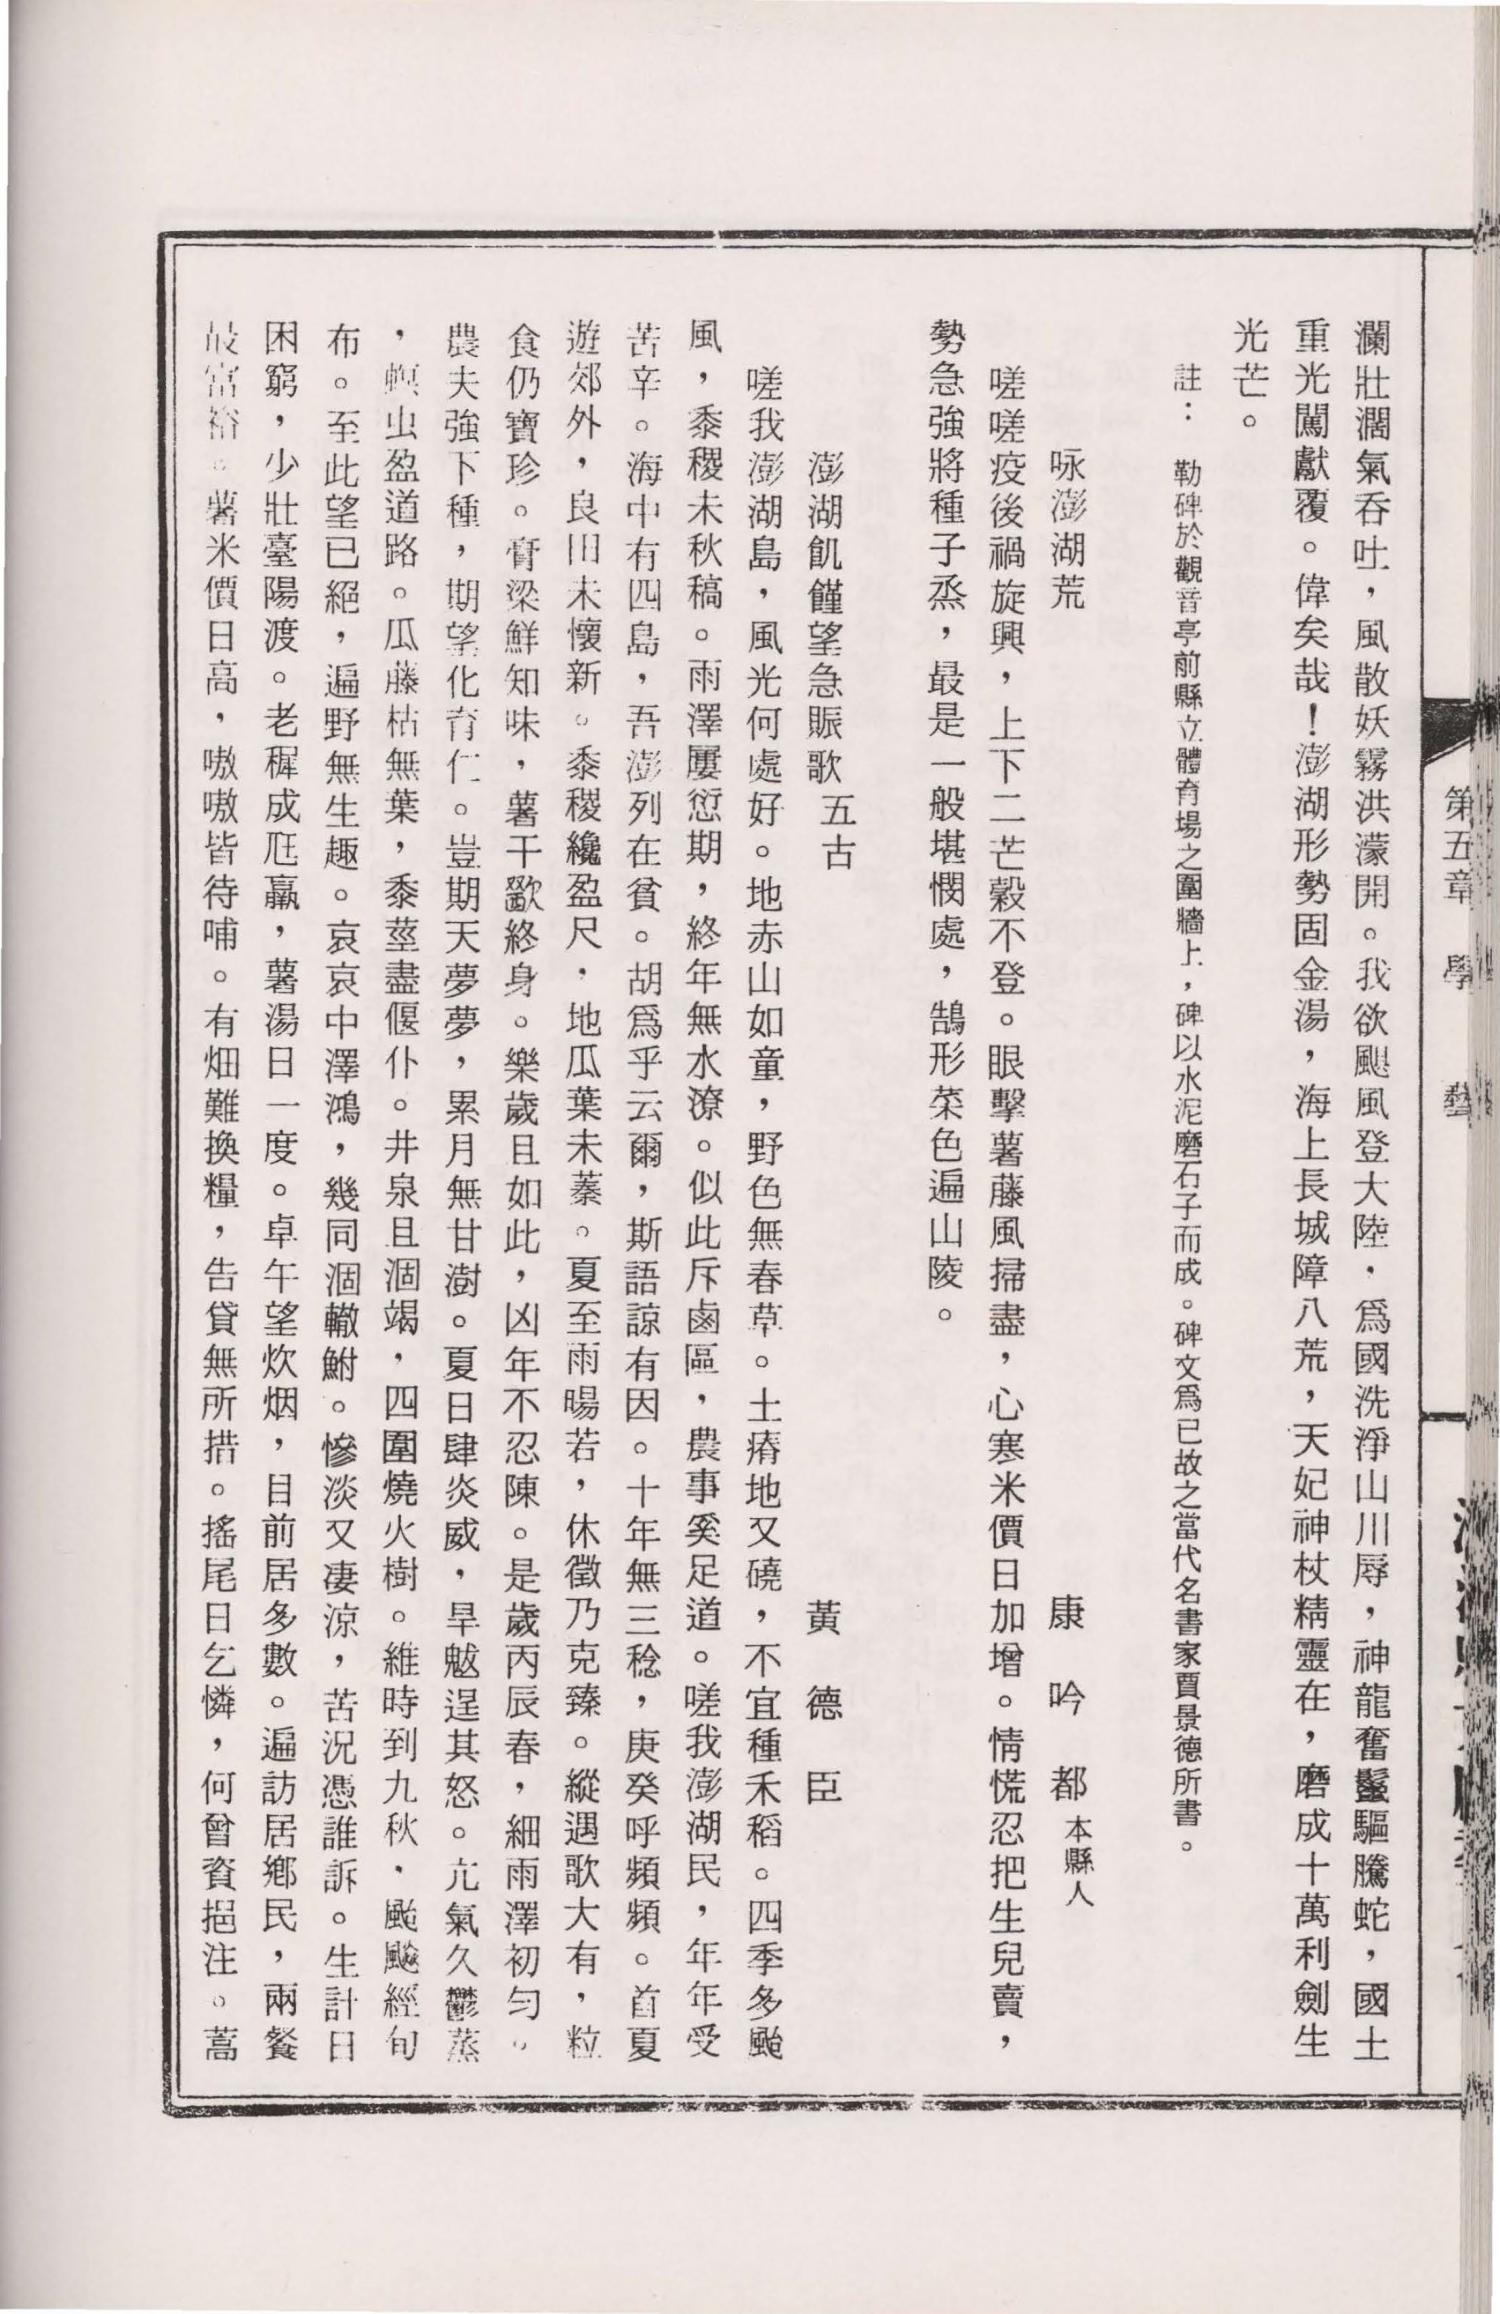 第五章 學 藝
瀾壯濶氣吞吐，風散妖霧洪濛開。我欲颶風登大陸，爲國洗淨山川辱，神龍奮鬣驅騰蛇，國土
重光闖獻覆。偉矣哉！澎湖形勢固金湯，海上長城障八荒，天妃神杖精靈在，磨成十萬利劍生
光芒。
註： 勒碑於觀音亭前縣立體育場之圍牆上，碑以水泥磨石子而成。碑文爲已故之當代名書家賈景德所書。
咏澎湖荒 康 吟 都 本縣人
嗟嗟疫後禍旋興，上下二芒穀不登。眼擊薯藤風掃盡，心寒米價日加增。情慌忍把生兒賣，
勢急強將種子烝，最是一般堪憫處，鵠形菜色遍山陵。
澎湖飢饉望急賑歌 五古 黃 德 臣
嗟我澎湖島，風光何處好。地赤山如童，野色無春草。土瘠地又磽，不宜種禾稻。四季多颱
風，黍稷未秋稿。雨澤屢愆期，終年無水潦。似此斥鹵區，農事奚足道。嗟我澎湖民，年年受
苦辛。海中有四島，吾澎列在貧。胡爲乎云爾，斯語諒有因。十年無三稔，庚癸呼頻頻。首夏
遊郊外，良田未懷新。黍稷纔盈尺，地瓜葉未蓁。夏至雨暘若，休徵乃克臻。縱遇歌大有，粒
食仍寶珍。膏梁鮮知味，薯干歠終身。樂歲且如此，凶年不忍陳。是歲丙辰春，細雨澤初勻。
農夫強下種，期望化育仁。豈期天夢夢，累月無甘澍。夏日肆炎威，旱魃逞其怒。亢氣久鬱蒸
，螟虫盈道路。瓜藤枯無葉，黍莖盡偃仆。井泉且涸竭，四圍燒火樹。維時到九秋，颱颷經旬
布。至此望已絕，遍野無生趣。哀哀中澤鴻，幾同涸轍鮒。慘淡又凄涼，苦況憑誰訴。生計日
困窮，少壯臺陽渡。老穉成尫羸，薯湯日一度。卓午望炊烟，目前居多數。遍訪居鄉民，兩餐
最富裕。薯米價日高，嗷嗷皆待哺。有畑難換糧，告貸無所措。搖尾日乞憐，何曾資挹注。蒿